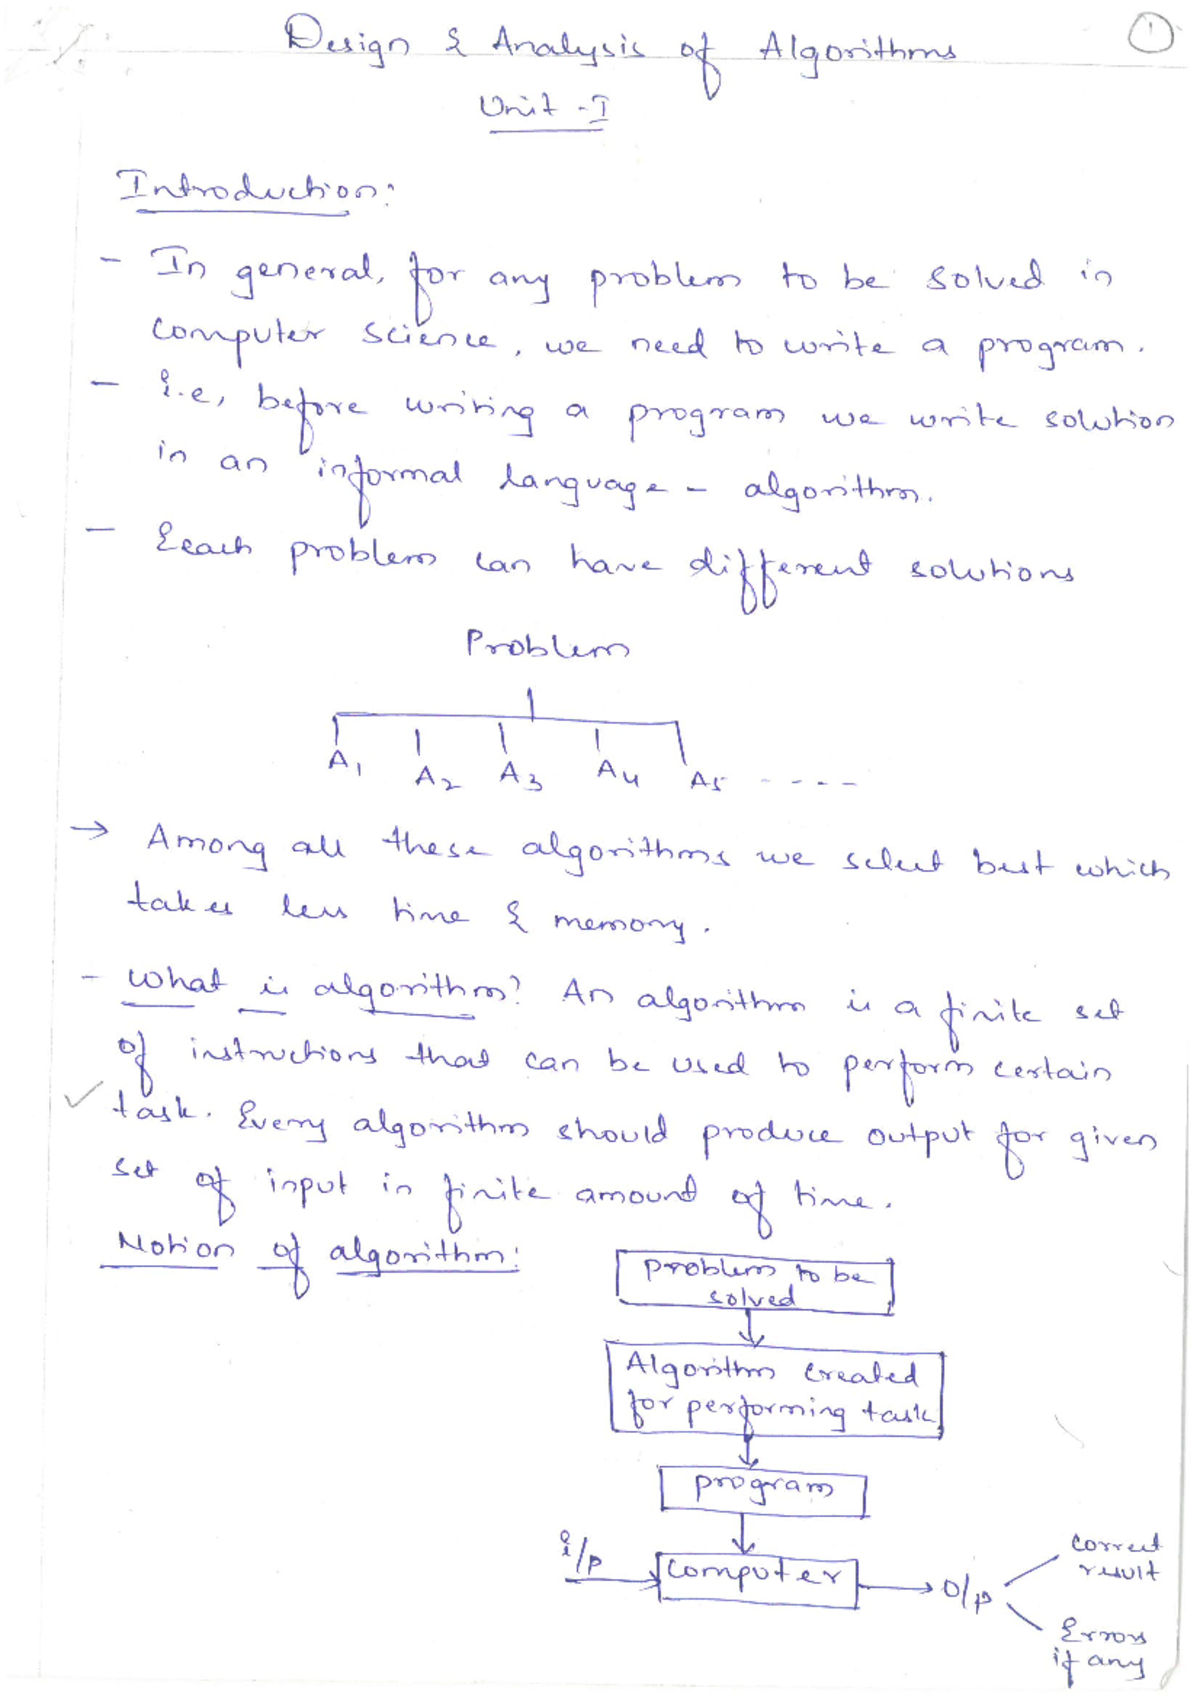 Design & Analysis of Algorithms
1
Unit - I
Introduction:
- In general, for any problem to be solved in
computer science, we need to write a program.
- i.e, before writing a program we write solution
in an informal language - algorithm.
- Eeach problem can have different solutions
Problem
A1 A2 A3 A4 A5 ----
→ Among all these algorithms we select best which
takes less time & memory.
- What is algorithm? An algorithm is a finite set
of instructions that can be used to perform certain
✓ task. Every algorithm should produce output for given
set of input in finite amount of time.
Notion of algorithm:
problem to be
solved
Algorithm created
for performing task
program
i/p
computer
O/p
correct
result
Errors
if any